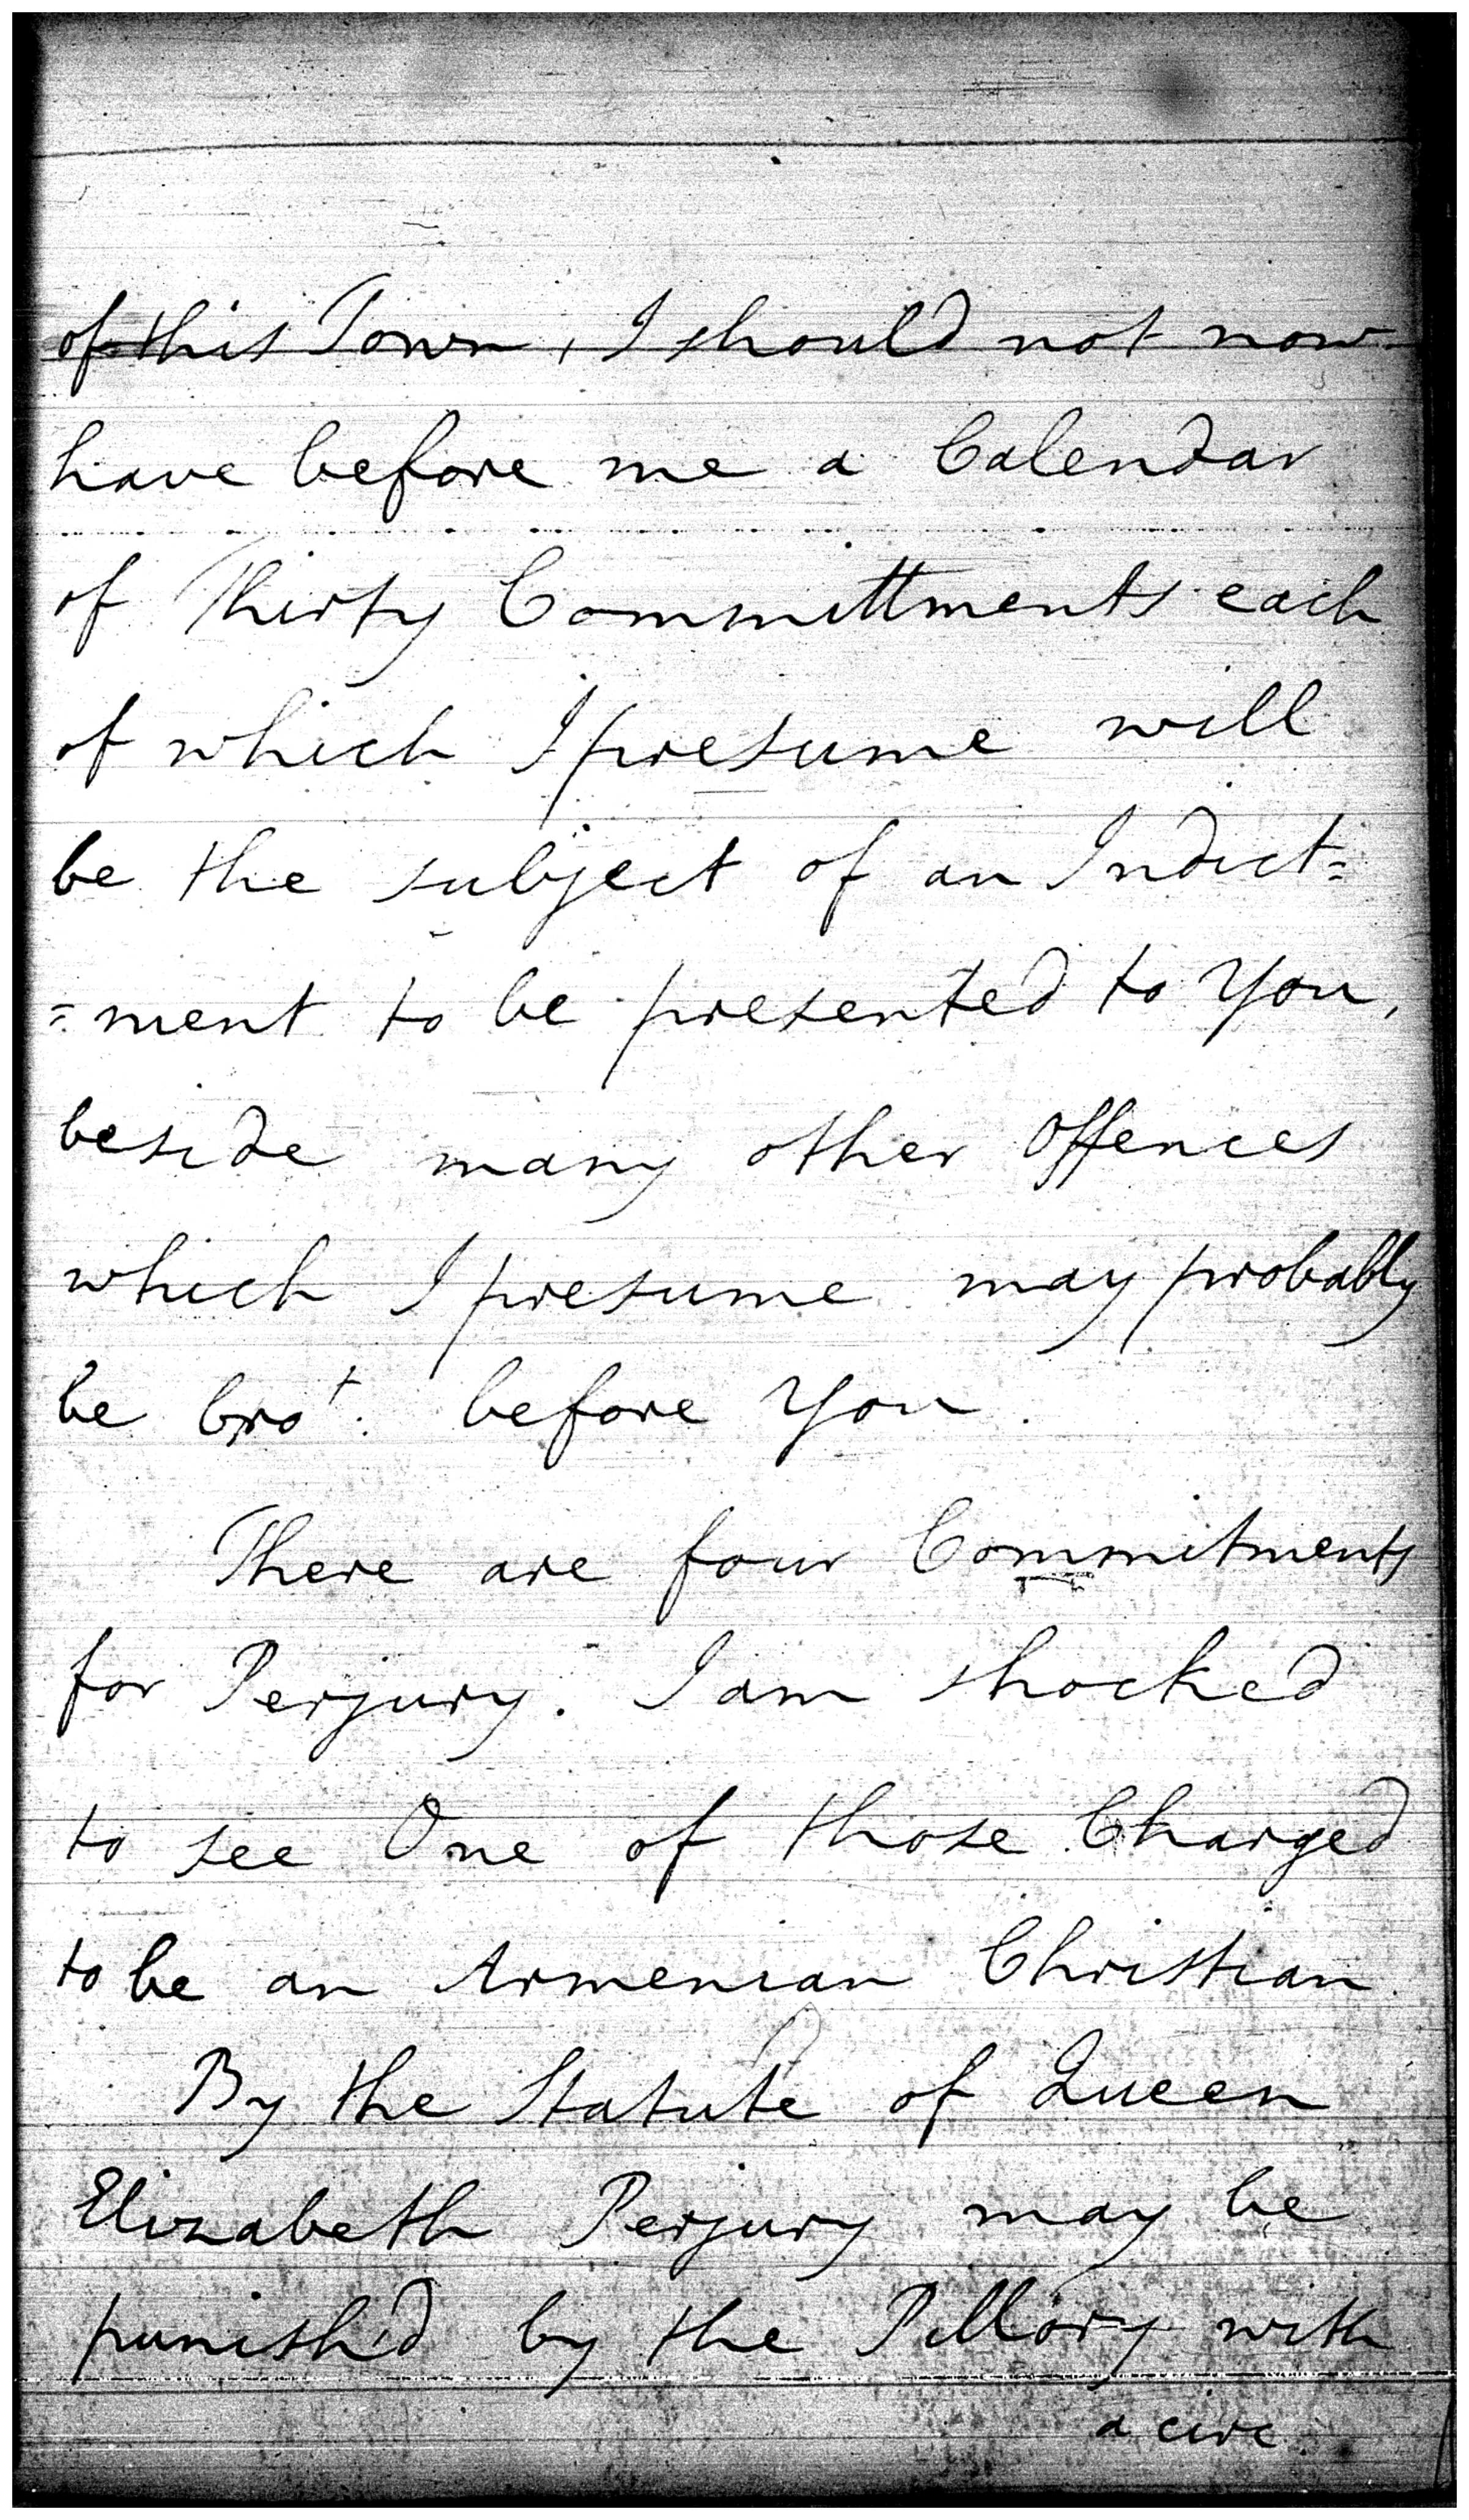 of this Town, I should not now
have before me a Calendar
of Thirty Committments each
of which I presume will
be the subject of an Indict=
=ment to be presented to You,
beside many other Offences
which I presume may probably
be bro.t before You.
There are four Commitments
for Perjury. I am shocked
to see One of those Charged
to be an Armenian Christian
By the Statute of Queen
Elizabeth Perjury may be
punish'd by the Pillory with
a circ